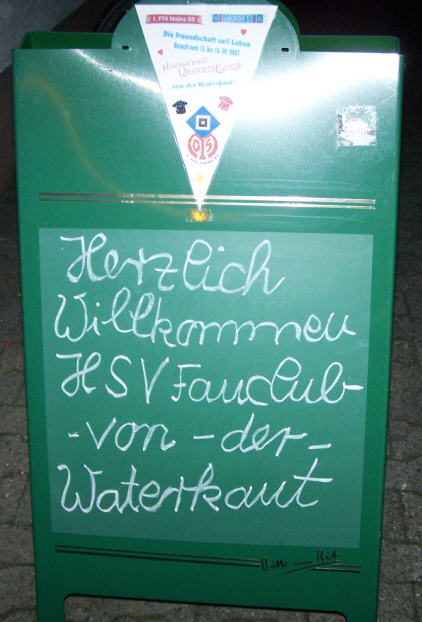 1. FSV Mainz 05
Die Freundschaft soll Leben
Besuch vom 13. bis 16. 09. 2007
von der Waterkaut
Herzlich
Willkommen
HSV Fanclub-
-von-der-
Waterkaut
Bitte ein Bit